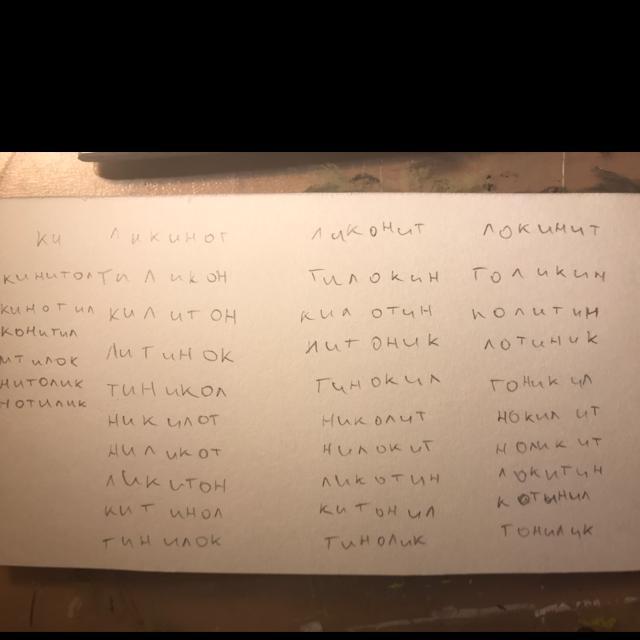 КИ ЛИКИНОТ ЛИКОНИТ ЛОКИНИТ
КИНИТОЛ ТИЛИКОН ТИЛОКИН ТОЛИКИН
КИНОТИЛ КИЛИТОН КИЛОТИН КОЛИТИН
КОНИТИЛ
ЛИТИНОК ЛИТОНИК ЛОТИНИК
ИТИЛОК
НИТОЛИК ТИНИКОЛ ТИНОКИЛ ТОНИКИЛ
НОТИЛИК
НИКИЛОТ НИКОЛИТ НОКИЛИТ
НИЛИКОТ НИЛОКИТ НОЛИКИТ
ЛИКИТОН ЛИКОТИН ЛОКИТИН
КИТИНОЛ КИТОНИЛ КОТЫНИЛ
ТИНИЛОК ТИНОЛИК ТОНИЛИК